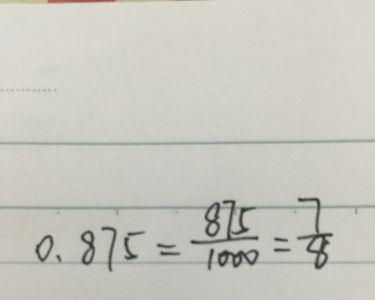 0.875 = 875/1000 = 7/8